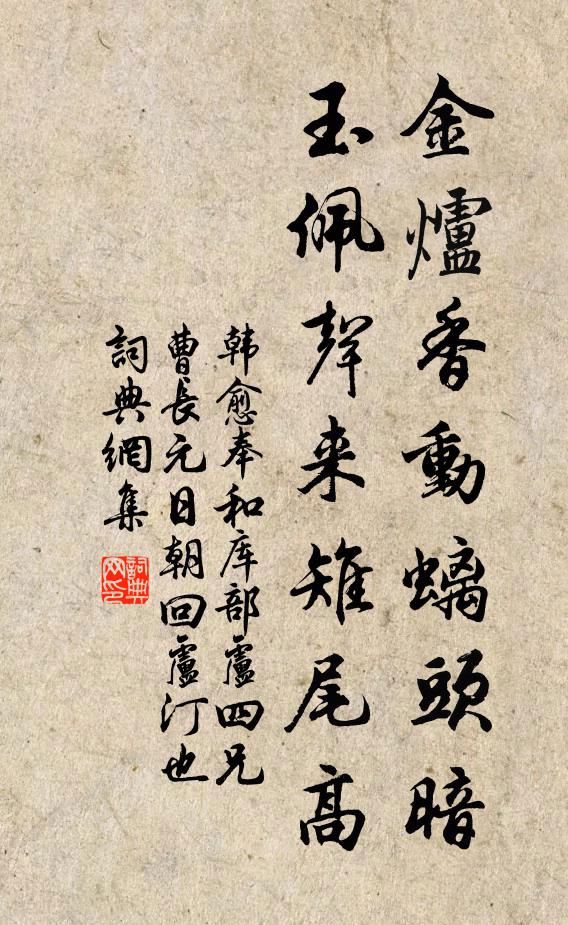 金爐香動螭頭暗
玉佩聲来雉尾高
韩愈奉和库部盧四兄
曹長元日朝回盧汀也
詞典網集
詞典
网印